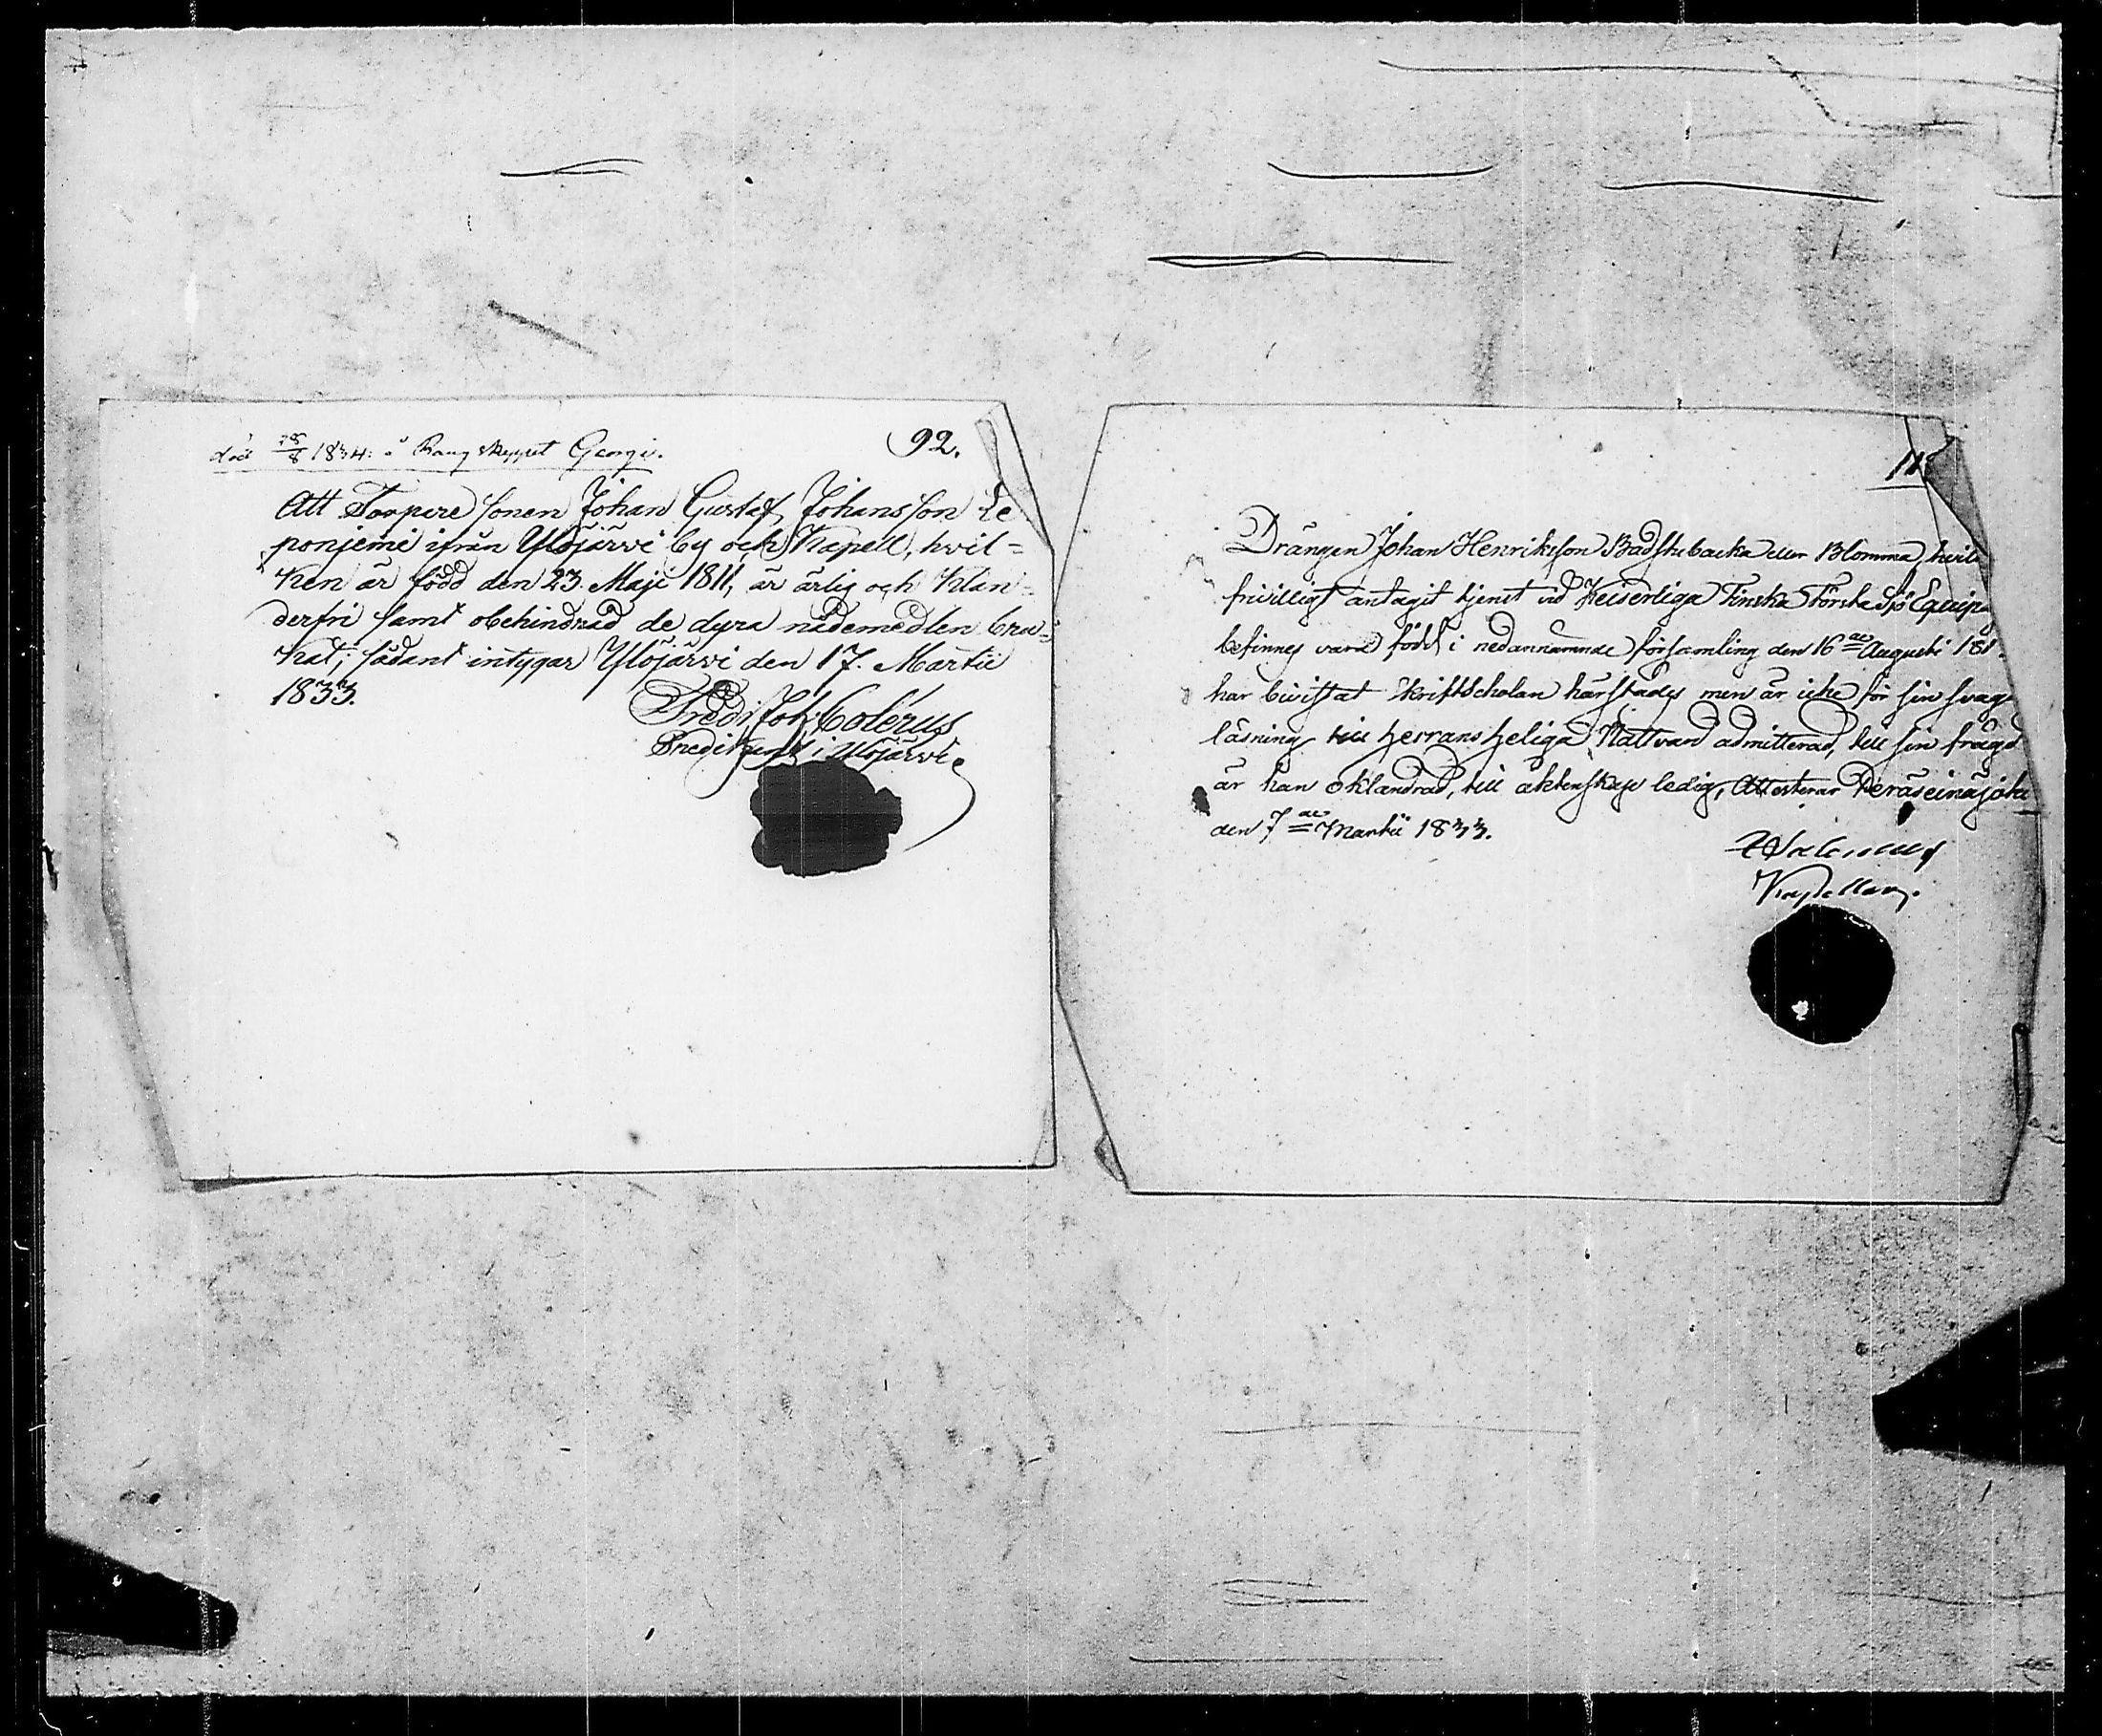 död 28/8 1834. å Rang skeppet Georgi.
92.
Att Torpare sonen Johan Gustaf Johansson Le
ponjemi ifrån Ylöjärvi by och Kapell, hvil=
ken är född den 23. Maji 1811, är ärlig och klan=
derfri samt obehindrad de dyra nådemedlen bru=
kat; sådant intygar Ylöjärvi den 17. Martii
1833.
Fred: Joh Colerus
Predikant i Ylöjärvi.
Drängen Johan Henriksson Badstubacka eller Blomma, hvil
frivilligt antagit tjenst vid Keiserliga Finska Första Sjö Equip
befinnes vara född i nedannämnde församling den 16de Augusti 181
har bivistat Skriftscholan härstädes men är icke för sin svag
läsning till Herrans Heliga Nattvard admitterad, till sin frägd
är han oklandrad, till äktenskap ledig, Attesterar Peräseinäjoki
den 7de Martii 1833.
Kapellan.